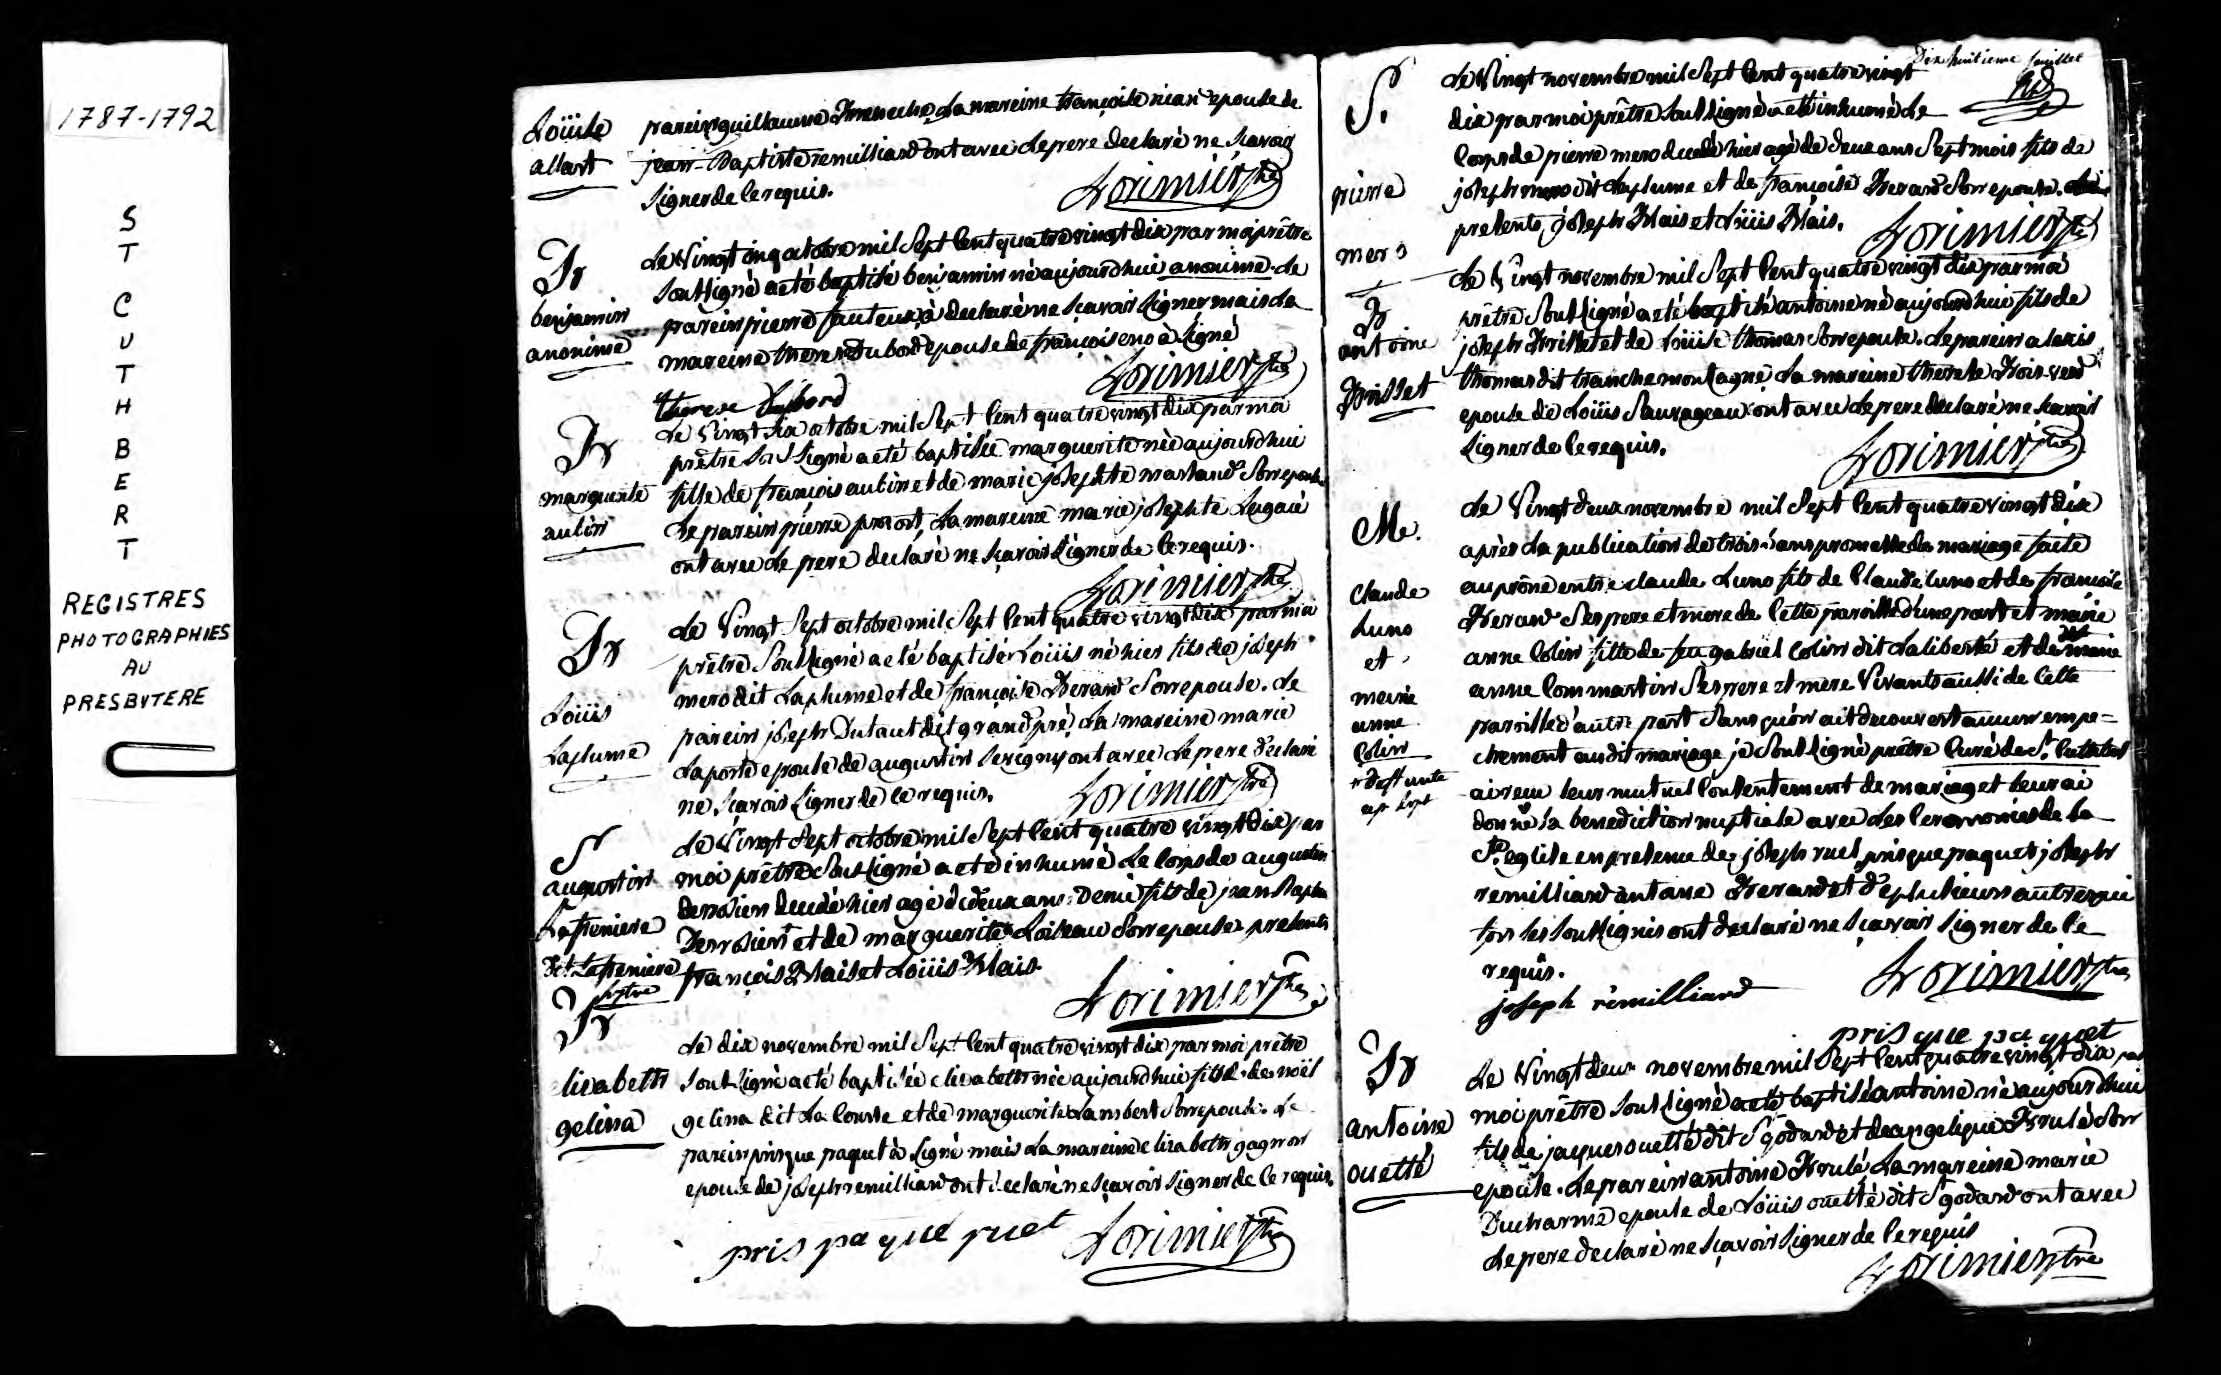 1787-1792
S
T
C
U
T
H
B
E
R
T
REGISTRES
PHOTOGRAPHIES
AU
PRESBYTERE
Loüise
allart
parein guillaume la mareine françoise epouse de
jean-Baptiste remilliard ont avec le pere declaré ne scavoir
signer de ce requis.
Lorimier ptre
B
benjamin
anonime
Le Vingt cinq octobre mil Sept Cent quatre vingt dix par moi prêtre
Soussigné a eté baptisé benjamin né aujourdhuie anonime. le
parein pierre fauteux à declaré ne scavoir signer mais la
mareine therese Dubord epouse de françois eno à Signé
Lorimier ptre
therese Dubord
B
marguerite
aubin
Le Vingt Six octobre mil Sept Cent quatre vingt dix par moi
prêtre Soussigné a eté baptisée marguerite née aujourdhuie
fille de françois aubin et de marie josephte marland Son epouse
le parein pierre la mareine marie josephte
ont avec le pere declaré ne scavoir Signer de ce requis.
Lorimier ptre
B
Loüis
Laplume
Le Vingt Sept octobre mil Sept Cent quatre vingt dix par moi
prêtre Soussigné a eté baptisé Loüis né hier fils de joseph
mero dit Laplume et de françoise Berard Son epouse. le
parein joseph Dutaut dit grandpré, La mareine marie
Laporte epouse de augustin ont avec le pere declaré
ne scavoir Signer de ce requis.
Lorimier ptre
S
augustin
Lafreniere
dit Lafreniere
Le Vingt Sept octobre mil Sept Cent quatre vingt dix par
moi prêtre Soussigné a eté inhumé Le Corps de augustin
decedé hier agé de deux ans Demie fils de jean Baptiste
et de marguerite Loiseau Son epouse presents
françois Blais et Loüis Blais.
Lorimier ptre
B
elisabeth
gelina
Le dix novembre mil Sept Cent quatre vingt dix par moi prêtre
Soussigné a eté baptisée elisabeth née aujourdhuie fille de noël
gelina dit La Course et de marguerite Lambert Son epouse. Le
parein prisque paquet à Signé mais La mareine elisabeth gagnon
epouse de joseph remilliard ont declaré ne scavoir Signer de ce requis.
pris pa que quet
Lorimier ptre
Dix huitieme feuillet
S.
pierre
mero
Le Vingt novembre mil Sept Cent quatre vingt
dix par moi prêtre Soussigné a eté inhumé Le
Corps de pierre mero decedé hier agé de deux ans Sept mois fils de
joseph mero dit Laplume et de françoise Berard Son epouse.
presents, joseph Blais et Loüis Blais.
Lorimier ptre
B
antoine
Brisset
Le Vingt novembre mil Sept Cent quatre vingt dix par moi
prêtre Soussigné a eté baptisé antoine né aujourdhuie fils de
joseph Brisset et de Loüise thomas Son epouse. Le parein alexis
thomas dit tranchemontagne La mareine therese Boisverd
epouse de Loüis Sauvageau ont avec le pere declaré ne scavoir
Signer de ce requis.
Lorimier ptre
M.
Claude
Luno
et
marie
anne
Colin
Le Vingt deux novembre mil Sept Cent quatre vingt dix
après La publication de trois bans promesse de mariage faite
au prône entre claude Luno fils de Claude Luno et de françoise
Berard Ses pere et mere de Cette paroisse d'une part et marie
anne Colin fille de feu gabriel Colin dit Laliberté et de marie
anne Commartin Ses pere et mere Vivants aussi de Cette
paroisse d'autre part Sans qu'on ait decouvert aucun empe=
chement audit mariage je Soussigné prêtre Curé de St. Cuthbert
ai reçu leur mutuel Consentement de mariage et leur ai
donné la benediction nuptiale avec les Ceremonies de la
Ste. eglise en presence de joseph ruel, prisque paquet joseph
remilliard antoine Berard et de plusieurs autres qui
hors les Soussignés ont declaré ne scavoir Signer de ce
requis.
Lorimier ptre
joseph rémilliard
prisque paquet
B
antoine
ouellé
Le Vingt deux novembre mil Sept Cent quatre vingt dix par
moi prêtre Soussigné a eté baptisé antoine né aujourdhuie
fils de jacques ouellé dit St godard et de angelique Brulé Son
epouse. Le parein antoine Brulé La mareine marie
Ducharme epouse de Loüis ouellé dit St godard ont avec
Le pere declaré ne scavoir Signer de ce requis
Lorimier ptre